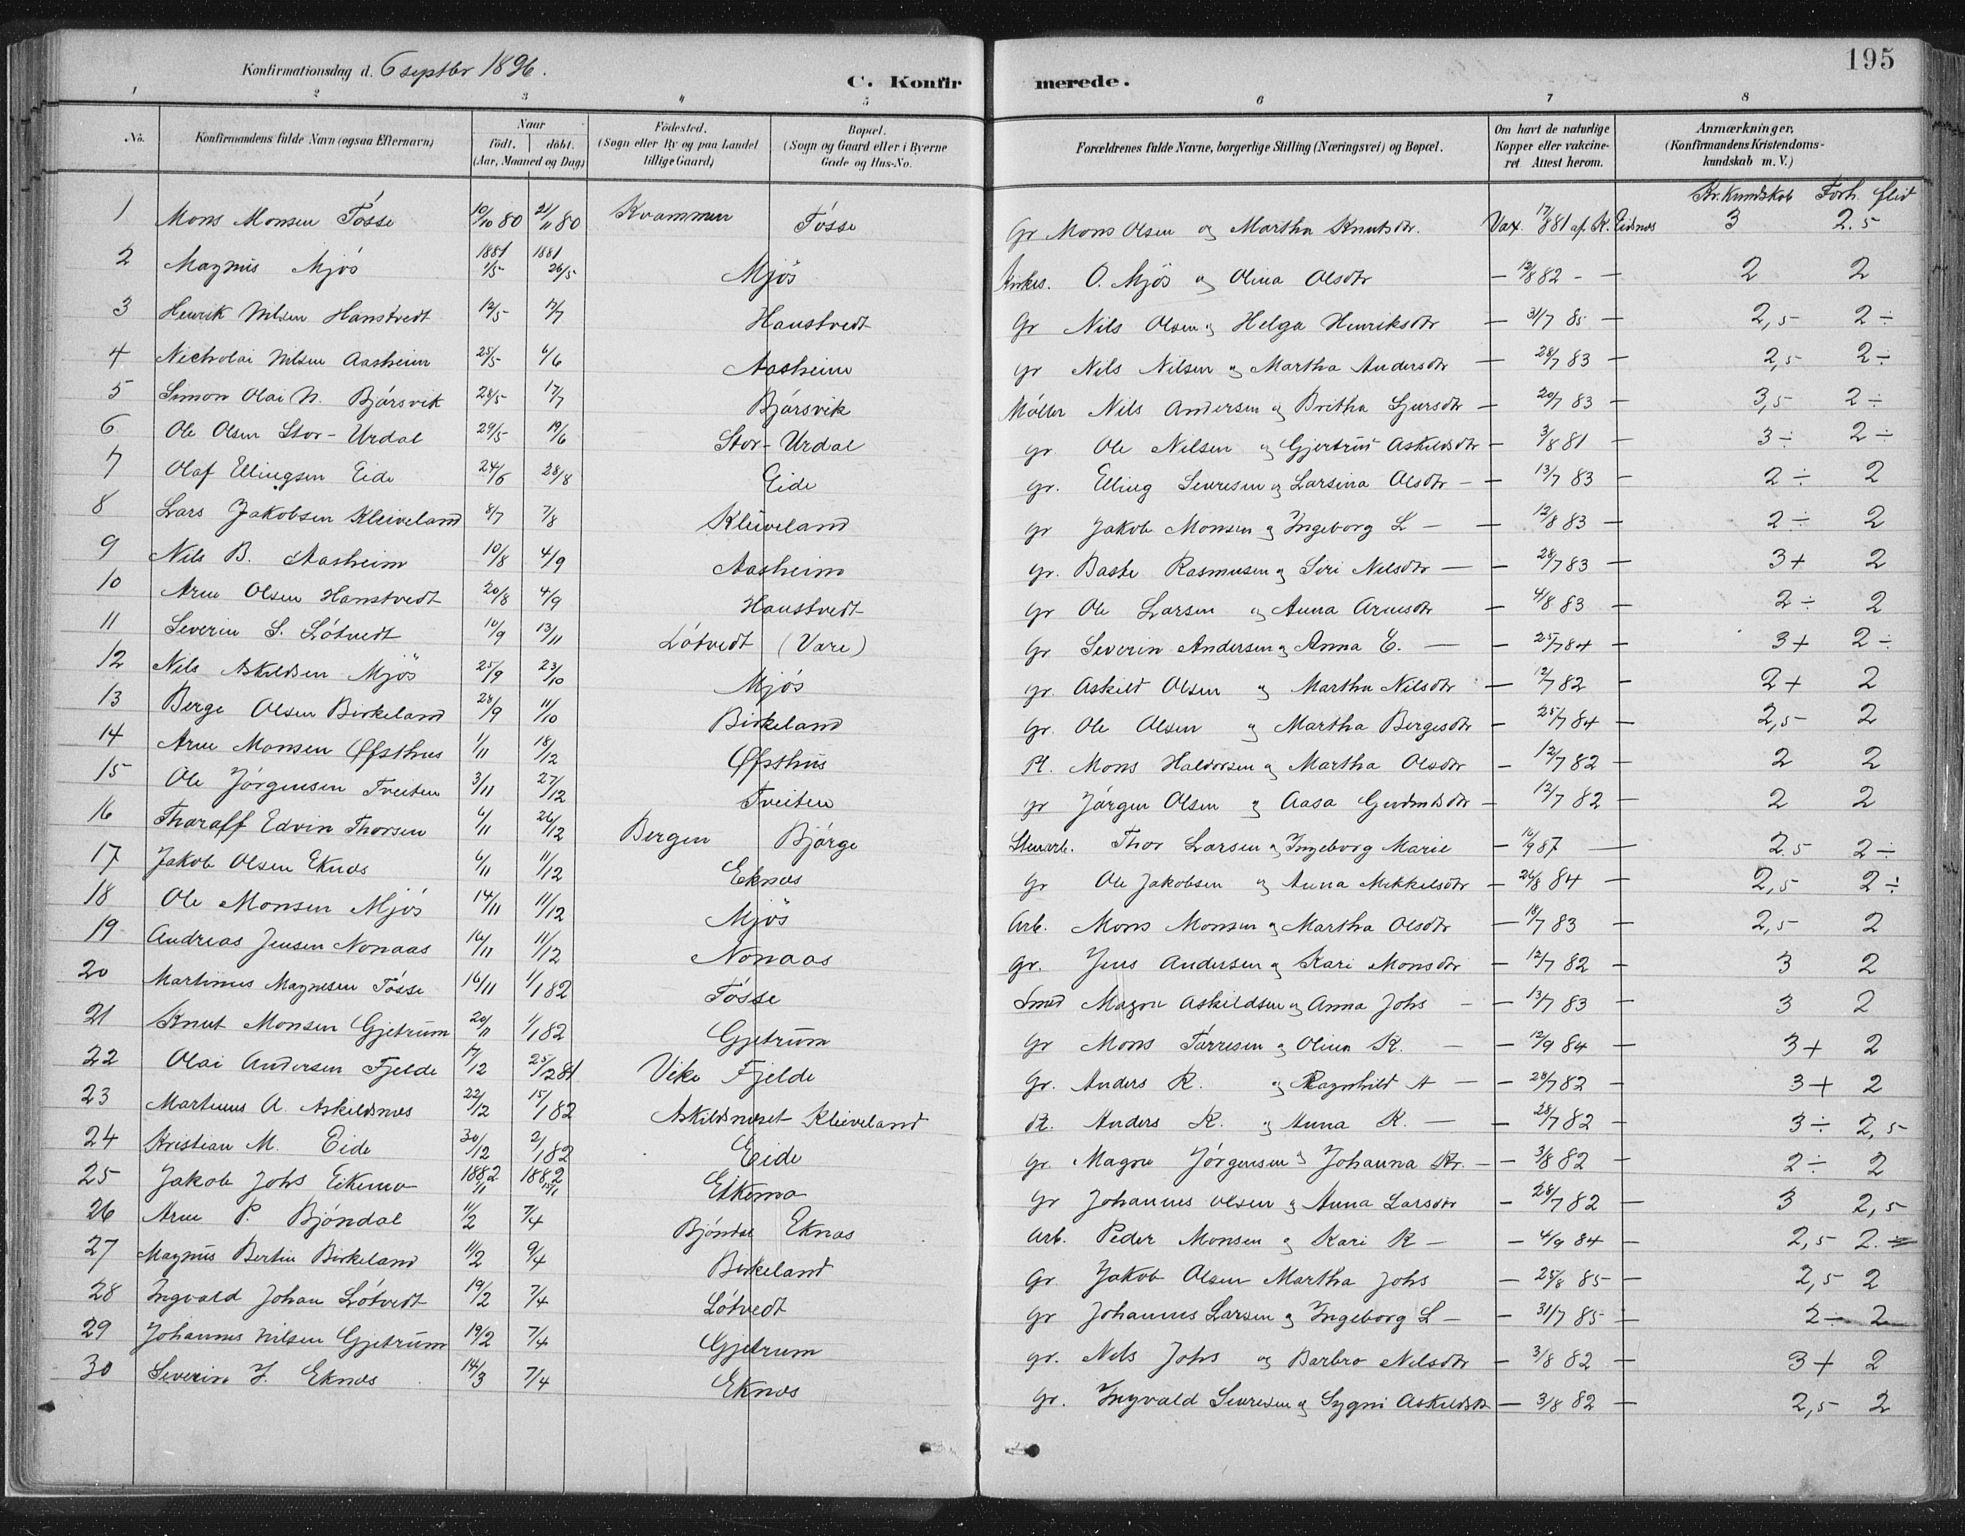 195
Konfirmationsdag d. 6 septbr 1896.
C. Konfirmerede.
1 2 3 4 5 6 7 8
No. Konfirmandens fulde Navn (ogsaa Efternavn) Naar født. døbt. (Aar, Maaned og Dag) Fødested. (Sogn eller By og paa Landet tillige Gaard) Bopæl. (Sogn og Gaard eller i Byerne Gade og Hus-No. Forældrenes fulde Navne, borgerlige Stilling (Næringsvei) og Bopæl. Om havt de naturlige Kopper eller vakcineret. Attest herom. Anmærkninger, (Konfirmandens Kristendomskundskab m. V.)
Kr. Kundskab Forh. flid
1 Mons Monsen Tósse 10/10 80 21/11 80 Kvammen Tósse Gr Mons Olsen og Martha Knutsdr. Vax. 17/8 81 af K. Eidsnes 3 2.5
2 Magnus Mjós 1881 1/5 1881 26/5 Mjós Kirkes. O. Mjós og Olina Olsdtr — 12/8 82 — 2 2
3 Henrik Nilsen Hanstvedt 12/5 17/7 Hanstvedt Gr Nils Olsen og Helga Henriksdtr — 31/7 85 — 2,5 2÷
4 Nicholai Nilsen Aasheim 25/5 6/6 Aasheim gr Nils Nilsen og Martha Andersdtr — 28/7 83 — 2,5 2÷
5 Simon Olai N. Bjórsvik 28/5 17/7 Bjórsvik Móller Nils Andersen og Britha Sjursdtr — 20/7 83 — 3,5 2÷
6 Ole Olsen Stor-Urdal 29/5 19/6 Stor-Urdal gr Ole Nilsen og Gjertrud Askildsdtr — 3/8 81 — 3÷ 2÷
7 Olaf Ellingsen Eide 24/6 28/8 Eide gr. Elling Seversen og Larsina Olsdtr — 13/7 83 — 2÷ 2
8 Lars Jakobsen Kleiveland 8/7 7/8 Kleiveland gr Jakob Monsen og Ingeborg L — 12/8 83 — 2÷ 2
9 Nils B. Aasheim 10/8 4/9 Aasheim gr. Baste Rasmusen og Siri Nilsdtr — 28/7 83 — 3+ 2
10 Arne Olsen Hanstvedt 20/8 4/9 Hanstvedt gr Ole Larsen og Anna Arnesdtr — 4/8 83 — 2÷ 2
11 Severin S. Lótvedt 10/9 13/11 Lótvedt (Vare) Gr Severin Andersen og Anna E. — 25/7 84 — 3+ 2÷
12 Nils Askildsen Mjós 25/9 23/10 Mjós gr Askild Olsen og Martha Nilsdtr — 12/7 82 — 2+ 2
13 Berge Olsen Birkeland 28/9 11/10 Birkeland gr. Ole Olsen og Martha Bergesdtr — 25/7 84 — 2,5 2
14 Arne Monsen Øfsthus 1/11 18/12 Øfsthus Pl. Mons Haldorsen og Martha Olsdtr — 12/7 82 — 2 2
15 Ole Jórgensen Tveiten 3/11 27/12 Tveiten gr Jórgen Olsen og Aasa — 12/7 82 — 2 2
16 Tharaff Edvin Thorsen 6/11 26/12 Bergen Bjórge Stenarb. Thor Larsen og Ingeborg Marie — 16/9 87 — 2.5 2÷
17 Jakob Olsen Eknæs 6/11 11/12 Eknæs Gr Ole Jakobsen og Anna Mikkelsdtr — 26/8 84 — 2,5 2÷
18 Ole Monsen Mjós 14/11 11/12 Mjós Arb. Mons Monsen og Martha Olsdtr — 18/7 83 — 2,5 2
19 Andreas Jensen Nonaas 16/11 11/12 Nonaas gr. Jens Andersen og Kari Monsdtr — 12/7 82 — 3 2
20 Martinus Magnesen Tósse 16/11 1/1 82 Tósse Smed Magne Askildsen og Anna Johs — 13/7 83 — 3 2
21 Knut Monsen Gjetrum 20/11 1/1 82 Gjetrum Gr Mons Tórresen og Olina K. — 12/9 84 — 3+ 2
22 Olai Andersen Fjelde 17/12 25/2 81 Vike Fjelde Gr. Anders K. og Ragnhild A — 28/7 82 — 3+ 2
23 Martinus A. Askildsnes 22/12 15/1 82 Askildsneset Kleiveland Pl. Anders K. og Anna K. — 28/7 82 — 3÷ 2,5
24 Kristian M. Eide 30/12 2/1 82 Eide gr. Magne Jórgensen og Johanna Kr. — 3/8 82 — 2÷ 2
25 Jakob Johs Eikemo 1882 1/1 1882 15/1 Eikemo gr Johannes Olsen og Anna Larsdtr — 28/7 82 — 3 2,5
26 Arne P. Bjóndal 11/2 7/4 Bjóndal Eknæs Arb. Peder Monsen og Kari K — 4/9 84 — 2,5 2.
27 Magnus Bertin Birkeland 11/2 9/4 Birkeland Gr Jakob Olsen Martha Johs — 25/8 85 — 2,5 2
28 Ingvald Johan Lótvedt 19/2 7/4 Lótvedt gr Johannes Larsen og Ingeborg L — 31/7 85 — 2÷ 2
29 Johannes Nilsen Gjetrum 19/2 7/4 Gjetrum gr. Nils Johs og Barbro Nilsdtr — 3/8 82 — 3+ 2
30 Severin I. Eknæs 14/3 7/4 Eknæs gr. Ingvald Seversen og Sygni Askildsdtr — 3/8 82 — 2,5 2